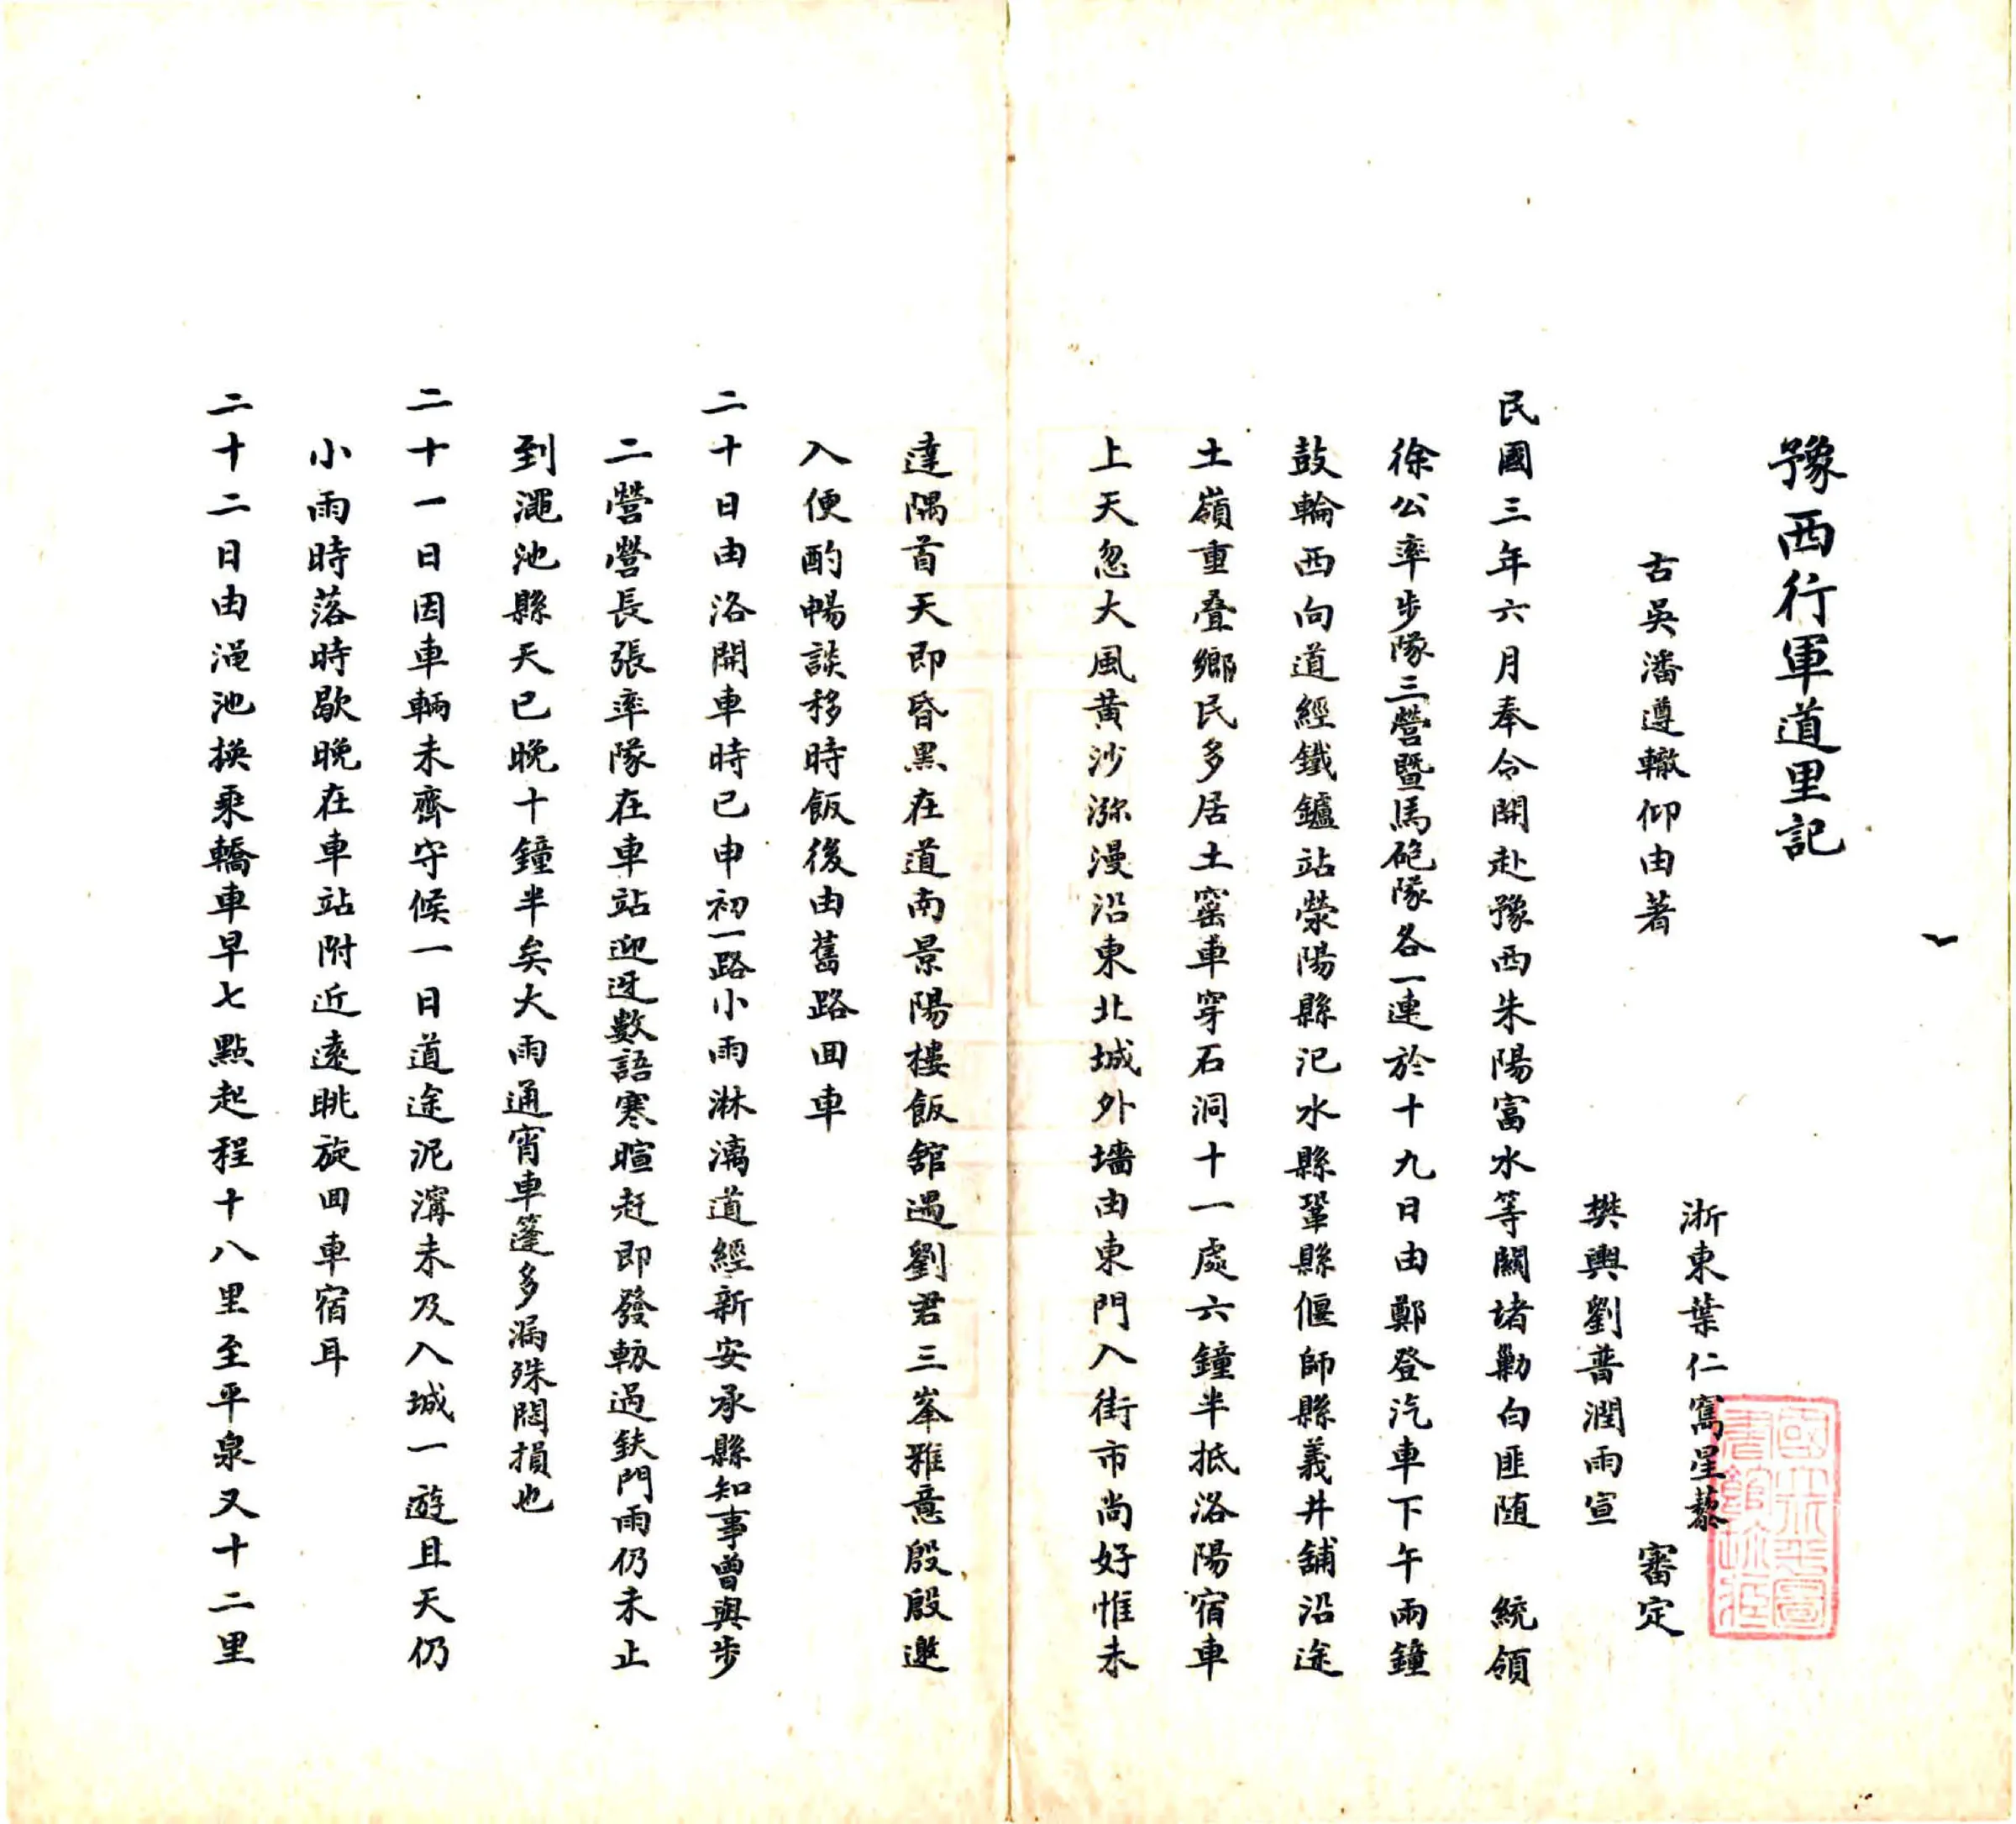 豫西行軍道里記
古吳潘遵轍仰由著
浙東葉仁寯星藜
樊輿劉普潤雨宣
審定
民國三年六月奉令開赴豫西朱陽富水等關堵勦白匪随　統領
徐公率步隊三營暨馬砲隊各一連於十九日由鄭登汽車下午兩鐘
鼓輪西向道經鐵鑪站滎陽縣汜水縣鞏縣偃師縣義井舖沿途
土嶺重疊鄉民多居土窰車穿石洞十一處六鐘半抵洛陽宿車
上天忽大風黃沙瀰漫沿東北城外墻由東門入街市尚好惟未
達隅首天即昏黑在道南景陽樓飯舘遇劉君三峯雅意殷殷邀
入便酌暢談移時飯後由舊路囬車
二十日由洛開車時已申初一路小雨淋漓道經新安承縣知事曾與步
二營營長張率隊在車站迎迓數語寒暄赶即發軔過鈇門雨仍未止
到澠池縣天已晚十鐘半矣大雨通宵車篷多漏殊悶損也
二十一日因車輛未齊守候一日道途泥濘未及入城一遊且天仍
小雨時落時歇晚在車站附近遠眺旋囬車宿耳
二十二日由渑池换乘轎車早七點起程十八里至平泉又十二里
國立北平圖書館珍藏